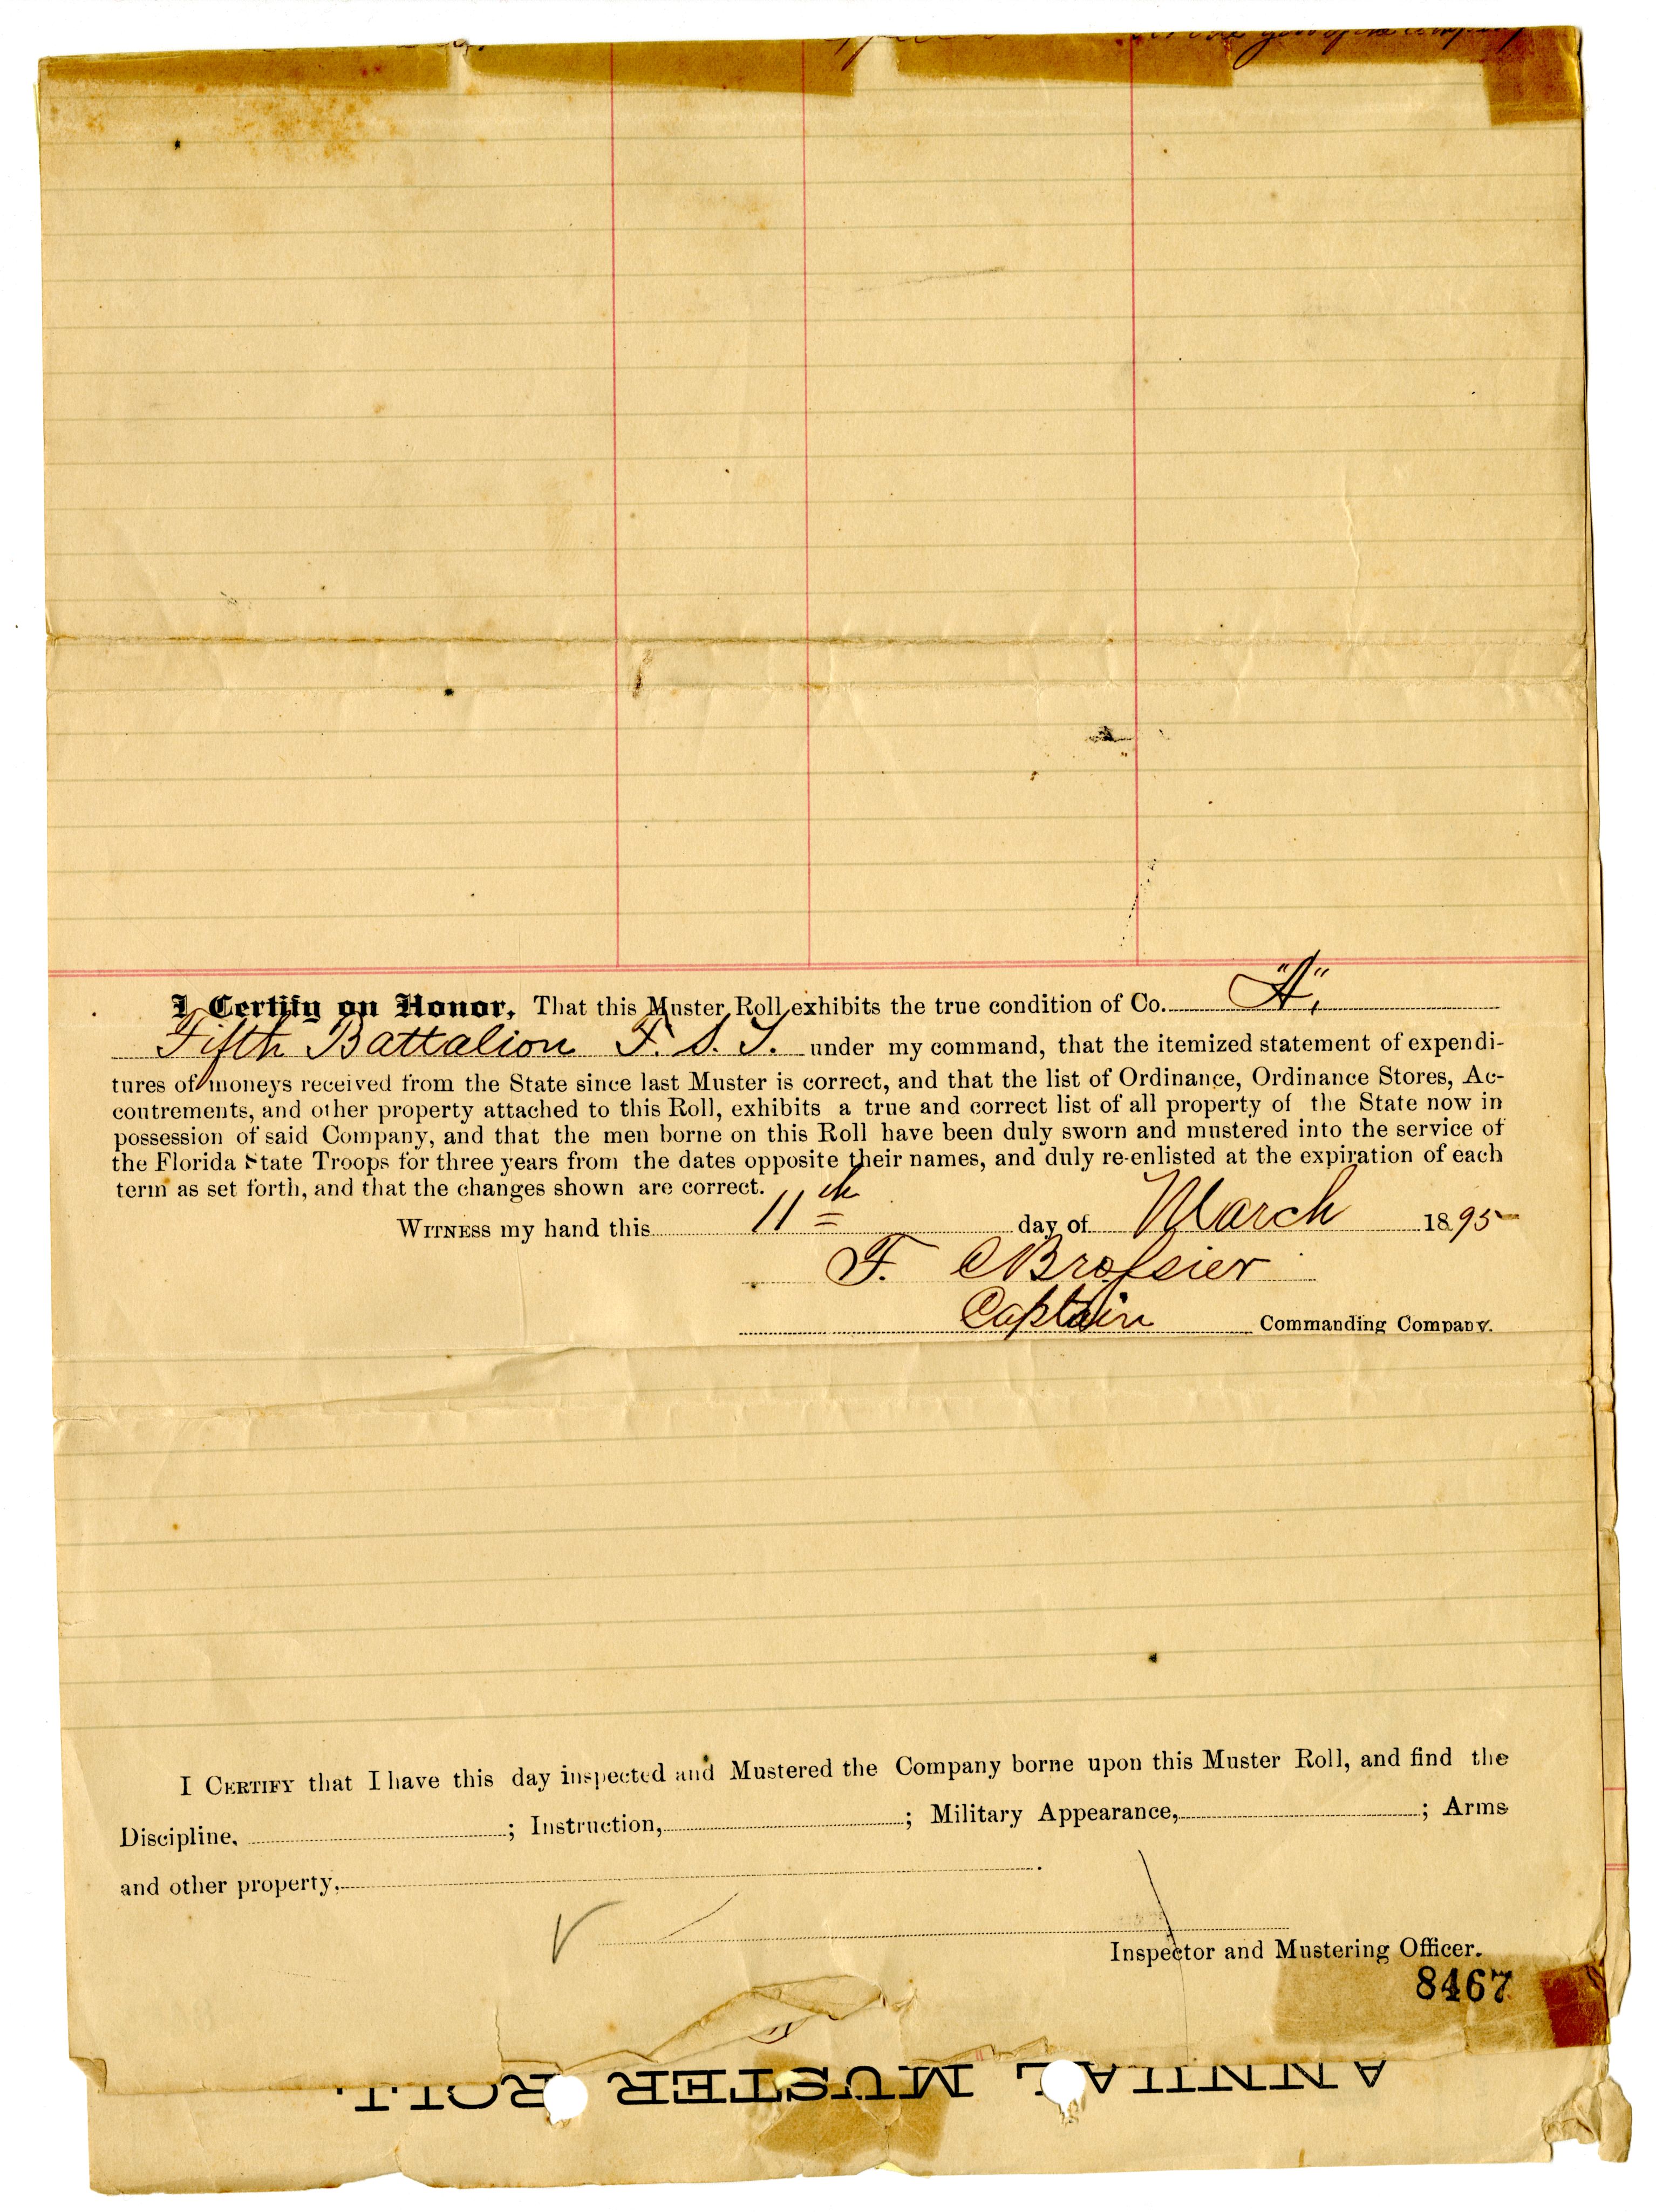 I Certify on Honor, That this Muster Roll exhibits the true condition of Co. "A",
Fifth Battalion F. S. T. under my command, that the itemized statement of expendi-
tures of moneys received from the State since last Muster is correct, and that the list of Ordinance, Ordinance Stores, Ac-
coutrements, and other property attached to this Roll, exhibits a true and correct list of all property of the State now in
possession of said Company, and that the men borne on this Roll have been duly sworn and mustered into the service of
the Florida State Troops for three years from the dates opposite their names, and duly re-enlisted at the expiration of each
term as set forth, and that the changes shown are correct.
WITNESS my hand this 11th day of March 1895
F. C Brossier
Captain Commanding Company.
I CERTIFY that I have this day inspected and Mustered the Company borne upon this Muster Roll, and find the
Discipline, ; Instruction, ; Military Appearance, ; Arms
and other property, .
Inspector and Mustering Officer.
8467
ANNUAL MUSTER ROLL.